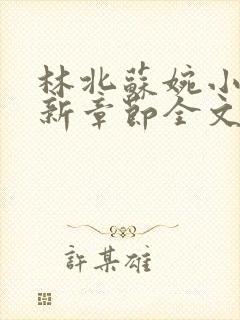 林北蘇婉小
新章節全文
許某雄